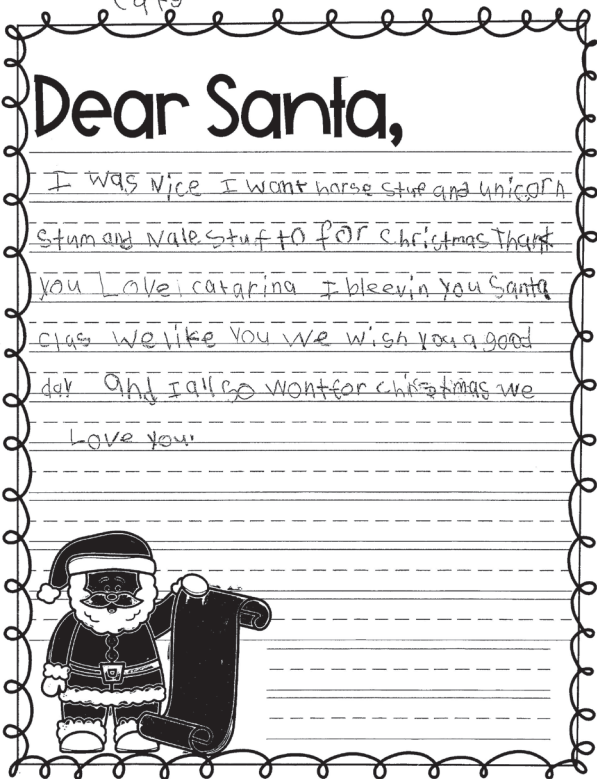 Dear Santa,
I was Nice I want horse stuf and unicorn
stum and Nale stuf to for christmas Thank
you Love catarina I bleevin you Santa
clas We like you We wish you a good
day and I allso wont for christmas we
Love you.